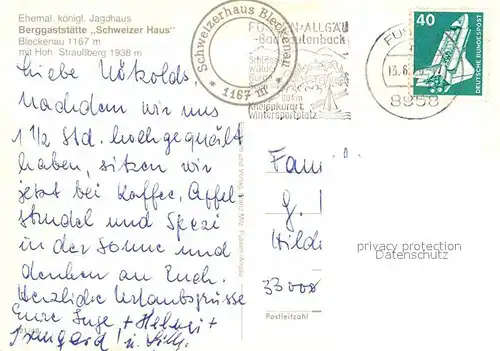 Ehemal. königl. Jagdhaus
Berggaststätte „Schweizer Haus"
Bleckenau 1167 m
mit Hoh. Straußberg 1938 m
Schweizerhaus Bleckenau
* 1167 m *
FÜSSEN·ALLGÄU
-Bad Faulenbach
Kneippkurort
Wintersportplatz
8958
40
DEUTSCHE BUNDESPOST
Liebe
Nachdem wir uns
1 1/2 Std. hochgequält
haben, sitzen wir
jetzt bei Kaffee, Apfel
strudel und Spezi
in der Sonne und
denken an Euch.
Herzliche Urlaubsgrüsse
Eure Inge + Helmut +
Irmgard! u. Silly
Fam
G.
Hild
privacy protection
Datenschutz
Postleitzahl